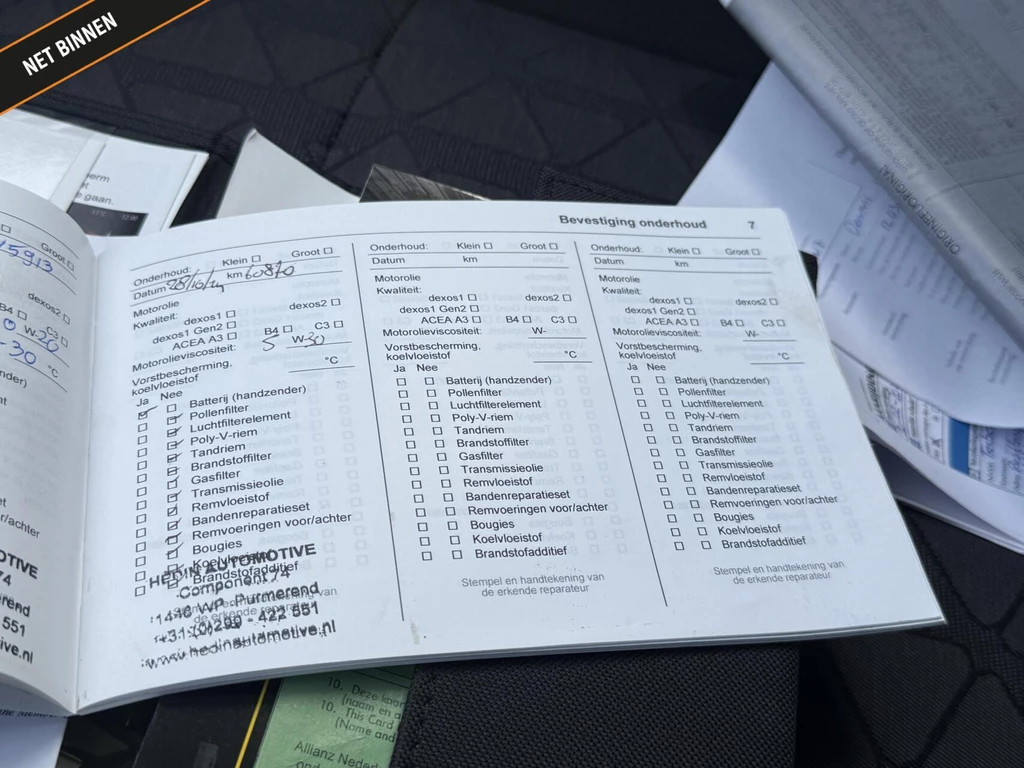 NET BINNEN
Bevestiging onderhoud 7
Groot
15913
dexos2
B4 C3
W-20
-30
°C
r/achter
74
551
ive.nl
Onderhoud: Klein Groot
Datum km 60870
Motorolie
Kwaliteit:
dexos1 dexos2
dexos1 Gen2
ACEA A3 B4 C3
Motorolieviscositeit: 5 W-30
Vorstbescherming,
koelvloeistof °C
Ja Nee
Batterij (handzender)
Pollenfilter
Luchtfilterelement
Poly-V-riem
Tandriem
Brandstoffilter
Gasfilter
Transmissieolie
Remvloeistof
Bandenreparatieset
Remvoeringen voor/achter
Bougies
Koelvloeistof
Brandstofadditief
HEDIN AUTOMOTIVE
Component 74
1446 WP Purmerend
+31 (0)299 - 422 551
www.hedinautomotive.nl
Onderhoud: Klein Groot
Datum km
Motorolie
Kwaliteit:
dexos1 dexos2
dexos1 Gen2
ACEA A3 B4 C3
Motorolieviscositeit: W-
Vorstbescherming,
koelvloeistof °C
Ja Nee
Batterij (handzender)
Pollenfilter
Luchtfilterelement
Poly-V-riem
Tandriem
Brandstoffilter
Gasfilter
Transmissieolie
Remvloeistof
Bandenreparatieset
Remvoeringen voor/achter
Bougies
Koelvloeistof
Brandstofadditief
Stempel en handtekening van
de erkende reparateur
Onderhoud: Klein Groot
Datum km
Motorolie
Kwaliteit:
dexos1 dexos2
dexos1 Gen2
ACEA A3 B4 C3
Motorolieviscositeit: W-
Vorstbescherming,
koelvloeistof °C
Ja Nee
Batterij (handzender)
Pollenfilter
Luchtfilterelement
Poly-V-riem
Tandriem
Brandstoffilter
Gasfilter
Transmissieolie
Remvloeistof
Bandenreparatieset
Remvoeringen voor/achter
Bougies
Koelvloeistof
Brandstofadditief
Stempel en handtekening van
de erkende reparateur
10. Deze kaar
(naam en a
10. This Card
(Name and
Allianz Nederl